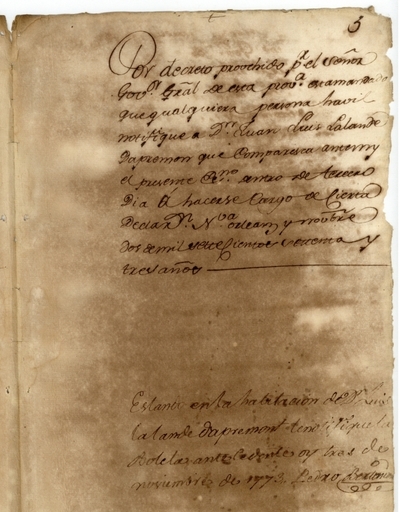 5
Por decreto provehido pr. el señor
Govor. Gral de esta prova. esta mandado
que qualquiera persona havil
notifique a Dn. Juan Luis Lalande
Dapremon que Comparesca ante my
el presente Esno. dentro de tercero
Dia a hacerse Cargo de Cierta
Declaron. Na. orleans y novbre
dos de mil setecientos setenta y
tres años
Estando en la habitacion de Dn. Luis
lalande Dapremont
antecedente oy tres de
noviembre de 1773 Pedro Bertonier